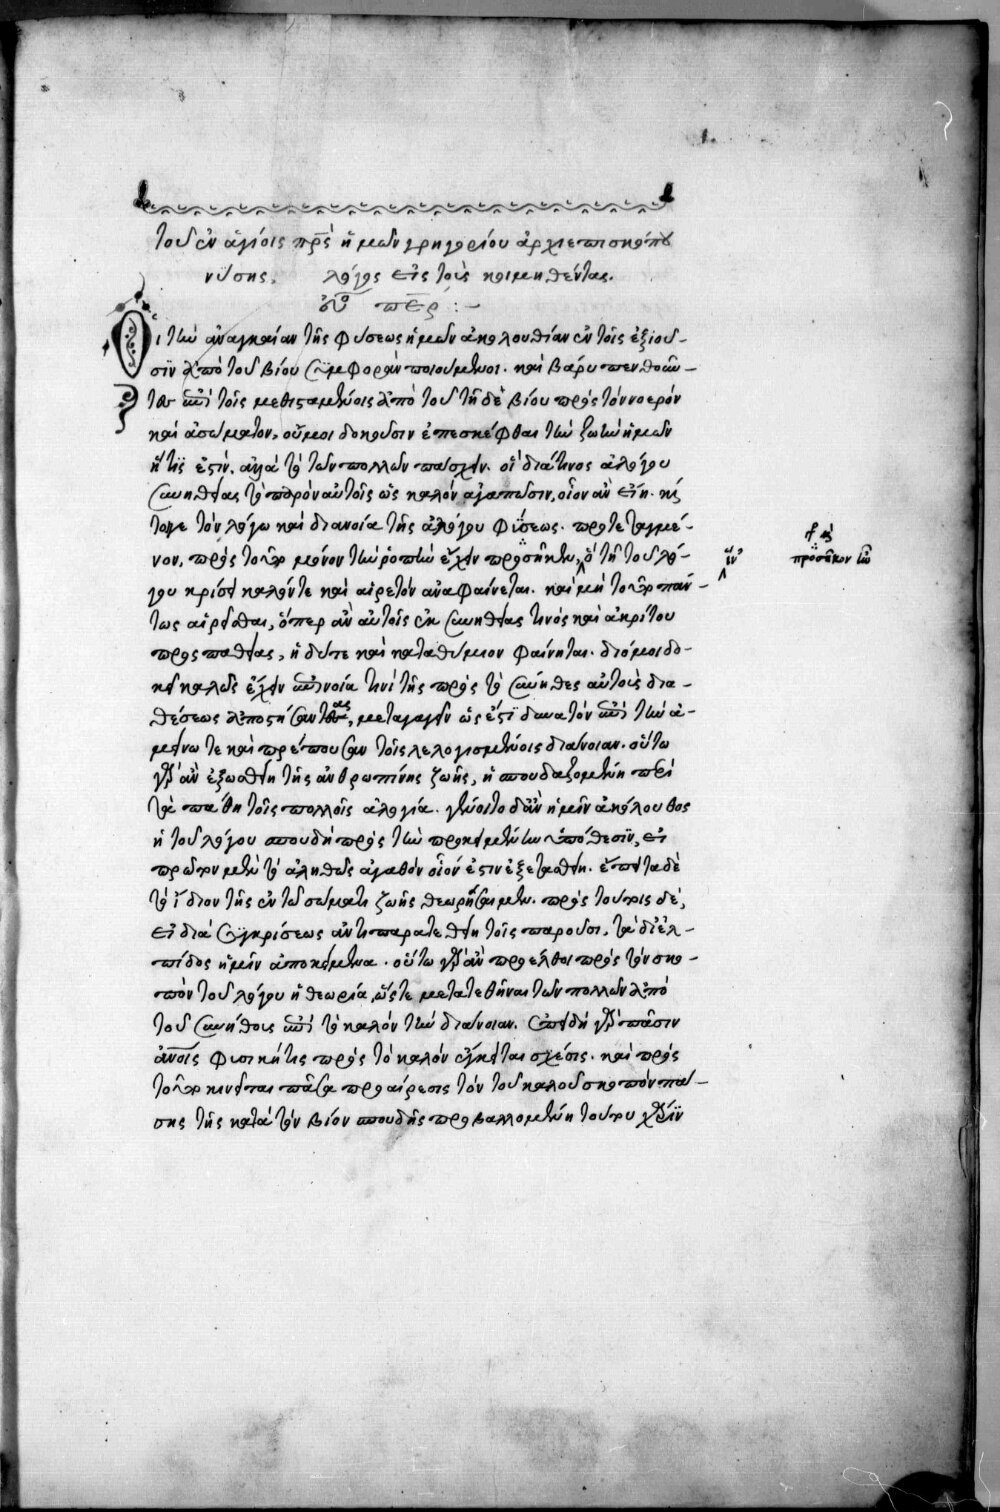 τοῦ ἐν ἁγίοις πρς ἡμῶν γρηγορίου ἀρχιεπισκόπου
νύσης. λόγος εἰς τοὺς κοιμηθέντας.
Οἱ τὴν ἀναγκαίαν τῆς φύσεως ἡμῶν ἀκολουθίαν ἐν τοῖς ἐξιοῦ-
σϊν ἀπὸ τοῦ βίου συμφορὰν ποιούμενοι. καὶ βαρυπενθοῦν-
τες ἐπὶ τοῖς μεθισταμένοις ἀπὸ τοῦ τῇδε βίου πρὸς τὸν νοερόν
καὶ ἀσώματον, οὔ μοι δοκοῦσιν ἐπεσκέφθαι τὴν ζωὴν ἡμῶν
ἥτις ἐστίν. ἀλλὰ τὸ τῶν πολλῶν πάσχειν. οἳ διά τινος ἀλόγου
συνηθείας τὸ παρὸν αὐτοῖς ὡς καλὸν ἀγαπῶσιν, οἷον ἂν εἴη. καί
τοιγε τὸν λόγω καὶ διανοία τῆς ἀλόγου φύσεως προτεταγμέ-
νον, πρὸς τοῦτο μόνον τὴν ῥοπὴν ἔχειν προσῆκεν, ὃ τῇ τοῦ λό-
γου κρίσει καλόν τε καὶ αἱρετὸν ἀναφαίνεται. καὶ μὴ τοῦτο πάν-
τως αἱρεῖσθαι, ὅπερ ἂν αὐτοῖς ἐκ συνηθείας τινὸς καὶ ἀκρίτου
προσπαθείας, ἡδύ τε καὶ καταθύμιον φαίνηται. διό μοι δο-
κεῖ καλῶς ἔχειν ἐπινοία τινὶ τῆς πρὸς τὸ σύνηθες αὐτοὺς δια-
θέσεως ἀποστήσαντας, μεταγαγεῖν ὡς ἔστι δυνατὸν ἐπὶ τὴν ἀ-
μείνω τε καὶ πρέπουσαν τοῖς λελογισμένοις διάνοιαν. οὕτω
γὰρ ἂν ἐξωσθείη τῆς ἀνθρωπίνης ζωῆς, ἡ σπουδαζομένη περὶ
τὰ πάθη τοῖς πολλοῖς ἀλογία. γένοιτο δ' ἂν ἡμῖν ἀκόλουθος
ἡ τοῦ λόγου σπουδὴ πρὸς τὴν προκειμένην ὑπόθεσϊν, εἰ
πρῶτον μὲν τὸ ἀληθῶς ἀγαθὸν οἷόν ἐστιν ἐξετασθείη. ἔπειτα δὲ
τὸ ἴδιον τῆς ἐν τῷ σώματι ζωῆς θεωρήσαιμεν. πρὸς τούτοις δέ,
εἰ διὰ συγκρίσεως ἀντιπαρατεθείη τοῖς παροῦσι, τὰ δι' ἐλ-
πίδος ἡμῖν ἀποκείμενα. οὕτω γὰρ ἂν προέλθοι πρὸς τὸν σκο-
πὸν τοῦ λόγου ἡ θεωρία, ὥστε μετατεθῆναι τῶν πολλῶν ἀπὸ
τοῦ συνήθους ἐπὶ τὸ καλὸν τὴν διάνοιαν. ἐπειδὴ γὰρ πᾶσιν
ἀνοις φυσική τις πρὸς τὸ καλὸν ἔγκειται σχέσις. καὶ πρὸς
τοῦτο κινεῖται πᾶσα προαίρεσις τὸν τοῦ καλοῦ σκοπὸν πά-
σης τῆς κατὰ τὸν βίον σπουδῆς προβαλλομένη τούτου χάριν
προσῆκον ἦν